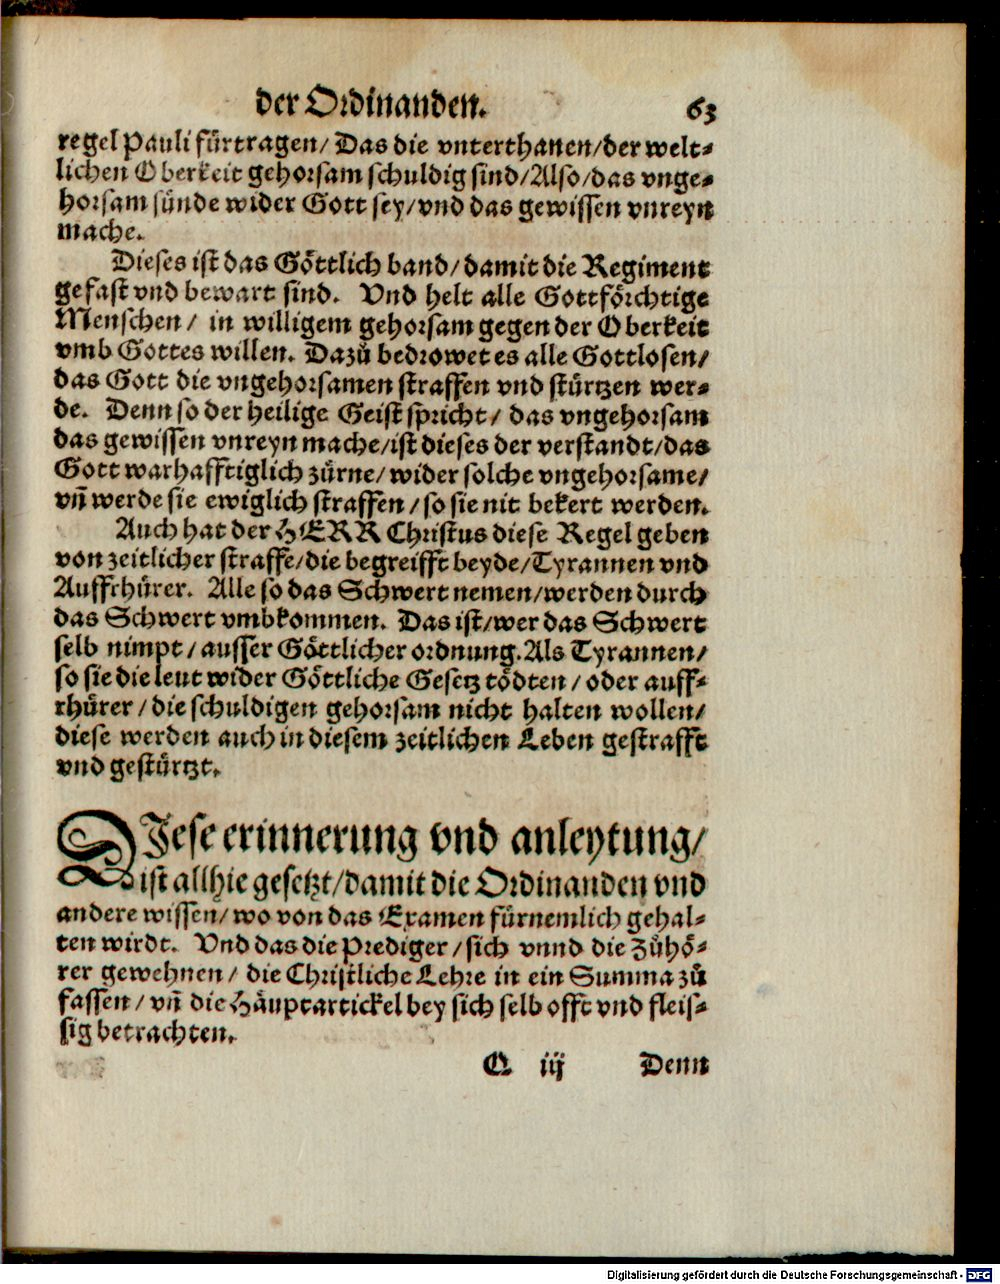 der Ordinanden. 63
regel Pauli fürtragen/ Das die vnterthanen/der welt-
lichen Oberkeit gehorsam schuldig sind/Also/das vnge-
horsam sünde wider Gott sey/vnd das gewissen vnreyn
mache.
Dieses ist das Göttlich band/damit die Regiment
gefast vnd bewart sind. Vnd helt alle Gottförchtige
Menschen/ in willigem gehorsam gegen der Oberkeit
vmb Gottes willen. Dazů bedrowet es alle Gottlosen/
das Gott die vngehorsamen straffen vnd stürtzen wer-
de. Denn so der heilige Geist spricht/ das vngehorsam
das gewissen vnreyn mache/ist dieses der verstandt/das
Gott warhafftiglich zürne/wider solche vngehorsame/
vñ werde sie ewiglich straffen/so sie nit bekert werden.
Auch hat der HERR Christus diese Regel geben
von zeitlicher straffe/die begreifft beyde/Tyrannen vnd
Auffrhürer. Alle so das Schwert nemen/werden durch
das Schwert vmbkommen. Das ist/wer das Schwert
selb nimpt/ausser Göttlicher ordnung.Als Tyrannen/
so sie die leut wider Göttliche Gesetz tödten/oder auff-
rhürer/die schuldigen gehorsam nicht halten wollen/
diese werden auch in diesem zeitlichen Leben gestrafft
vnd gestürtzt.
DJese erinnerung vnd anleytung/
ist allhie gesetzt/damit die Ordinanden vnd
andere wissen/wo von das Examen fürnemlich gehal-
ten wirdt. Vnd das die Prediger/sich vnnd die Zühö-
rer gewehnen/ die Christliche Lehre in ein Summa zů
fassen/vñ die Häuptartickel bey sich selb offt vnd fleis-
sig betrachten.
Q iij Denn
Digitalisierung gefördert durch die Deutsche Forschungsgemeinschaft - DFG